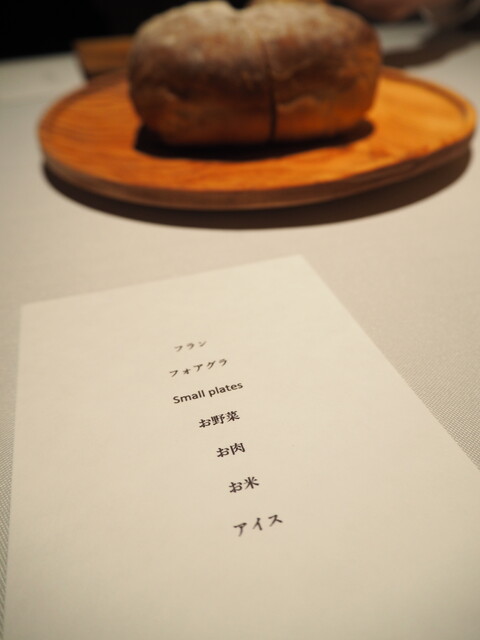 フラン
フォアグラ
Small plates
お野菜
お肉
お米
アイス